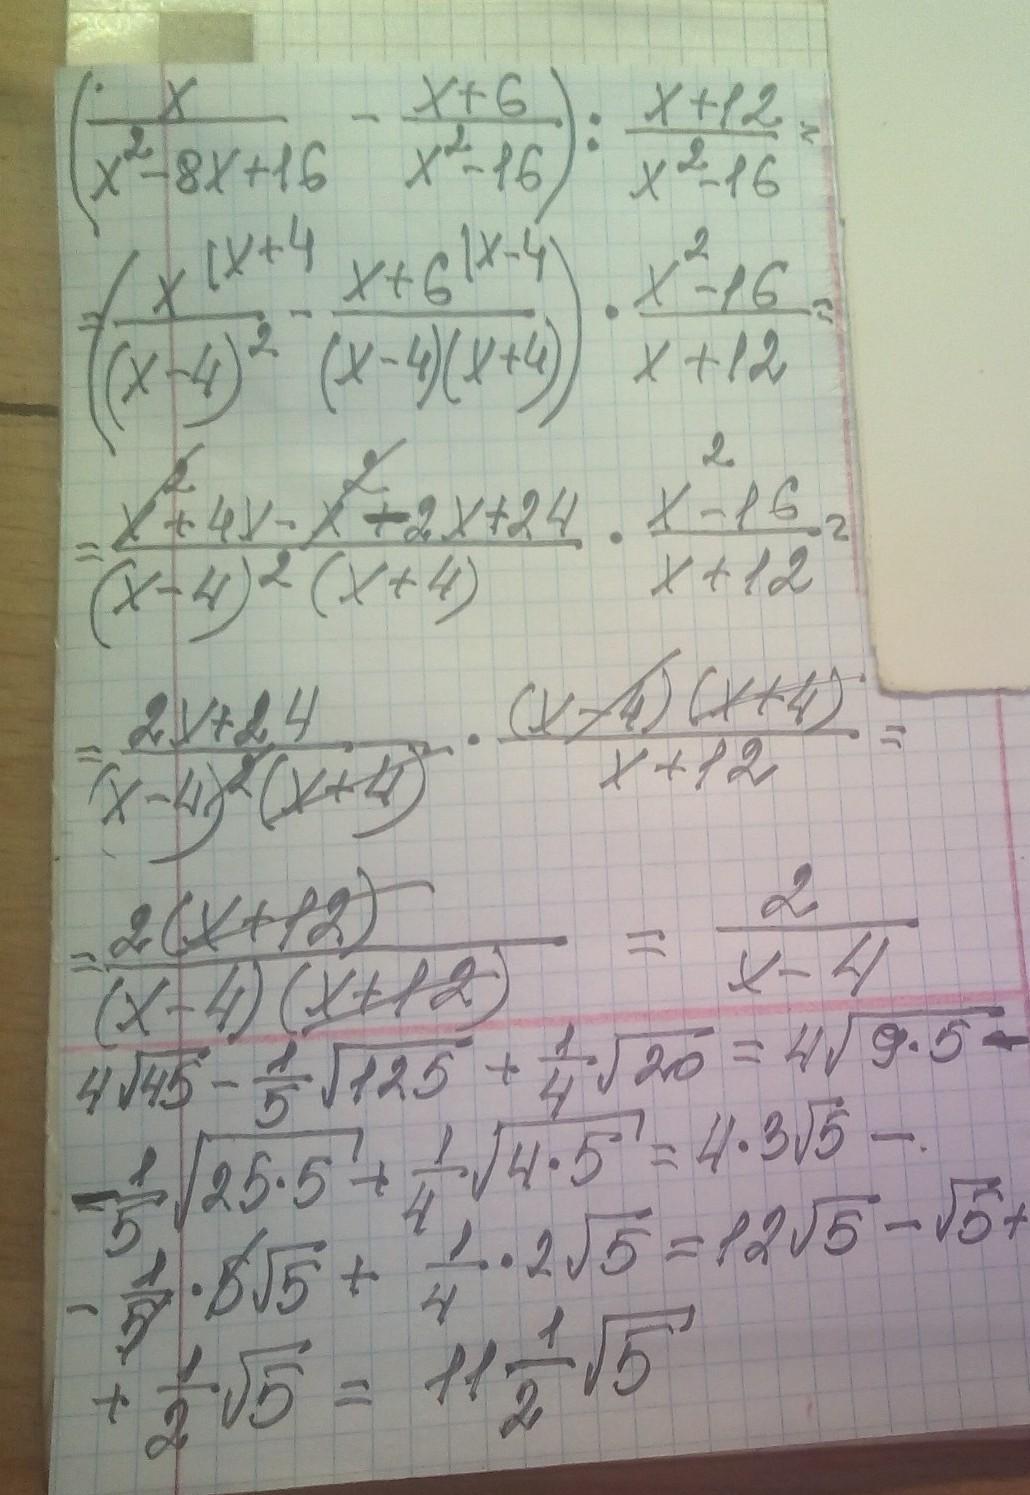 (x/(x²-8x+16) - (x+6)/(x²-16)) : (x+12)/(x²-16) =
= (x^(x+4/(x-4)² - x+6^(x-4/(x-4)(x+4)) · (x²-16)/(x+12) =
= (x²+4x-x²-2x+24)/((x-4)²(x+4)) · (x²-16)/(x+12) =
= (2x+24)/((x-4)²(x+4)) · ((x-4)(x+4))/(x+12) =
= (2(x+12))/((x-4)(x+12)) = 2/(x-4)
4√45 - 1/5 √125 + 1/4 √20 = 4√(9·5) -
- 1/5 √(25·5) + 1/4 √(4·5) = 4·3√5 -
- 1/5 · 5√5 + 1/4 · 2√5 = 12√5 - √5 +
+ 1/2 √5 = 11 1/2 √5